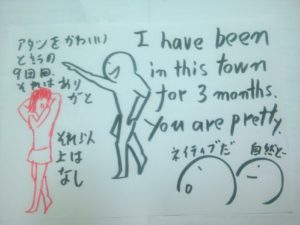 アタシをかわいい
と言うの
9回目。
それはあり
がと
それ以
上は
なし
I have been
in this town
for 3 months.
You are pretty.
ネイティブだ
自然と…